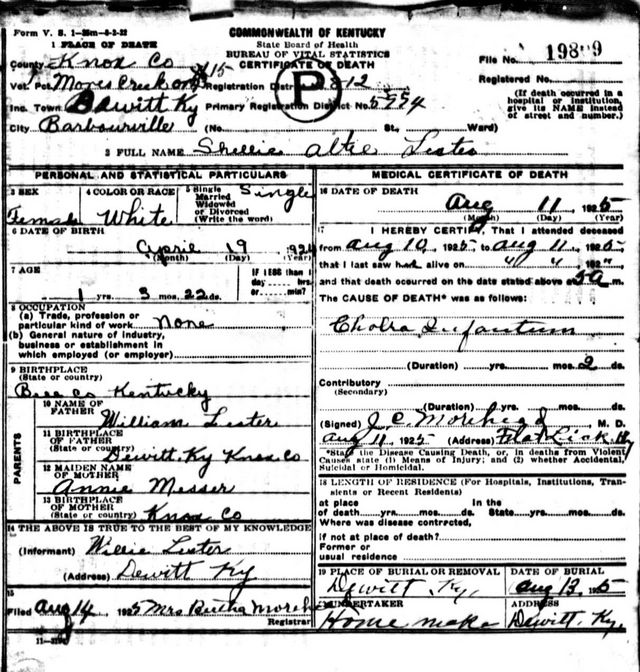 Form V. S. 1-25m-8-2-22
COMMONWEALTH OF KENTUCKY
State Board of Health
BUREAU OF VITAL STATISTICS
CERTIFICATE OF DEATH
1 PLACE OF DEATH
County Knox Co
File No. 19899
Vot. Pct. Moores Creek
Registration District No. 812
Registered No.
Inc. Town Dewitt Ky
Primary Registration District No. 5954
(If death occurred in a hospital or institution, give its NAME instead of street and number.)
City Barbourville (No. St., Ward)
P
2 FULL NAME Shellie Altie Lester
PERSONAL AND STATISTICAL PARTICULARS
3 SEX
Female
4 COLOR OR RACE
White
5 Single
Married
Widowed
or Divorced
(Write the word)
Single
6 DATE OF BIRTH
April 19 1924
(Month) (Day) (Year)
7 AGE
1 yrs. 3 mos. 22 ds.
If LESS than 1
day hrs.
or min.?
8 OCCUPATION
(a) Trade, profession or
particular kind of work None
(b) General nature of industry,
business or establishment in
which employed (or employer)
9 BIRTHPLACE
(State or country)
Bell Co Kentucky
PARENTS
10 NAME OF
FATHER William Lester
11 BIRTHPLACE
OF FATHER
(State or country) Dewitt, Ky Knox Co
12 MAIDEN NAME
OF MOTHER
Annie Messer
13 BIRTHPLACE
OF MOTHER
(State or country) Knox Co
14 THE ABOVE IS TRUE TO THE BEST OF MY KNOWLEDGE
(Informant) Willie Lester
(Address) Dewitt Ky
15
Filed Aug 14 1925 Mrs Bertha
Registrar
MEDICAL CERTIFICATE OF DEATH
16 DATE OF DEATH
Aug 11, 1925
(Month) (Day) (Year)
17 I HEREBY CERTIFY, That I attended deceased
from Aug 10, 1925, to Aug 11, 1925,
that I last saw h alive on " " 192",
and that death occurred on the date stated above at 5 a m.
The CAUSE OF DEATH* was as follows:
Cholra Infantum
(Duration) yrs. mos. 2 ds.
Contributory
(Secondary)
(Duration) yrs. mos. ds.
(Signed) J. C. Morehead, M. D.
Aug 11, 1925 (Address) Flat Lick Ky
*State the Disease Causing Death, or, in deaths from Violent
Causes state (1) Means of Injury; and (2) whether Accidental,
Suicidal or Homicidal.
18 LENGTH OF RESIDENCE (For Hospitals, Institutions, Transients or Recent Residents)
At place In the
of death yrs. mos. ds. State yrs. mos. ds.
Where was disease contracted,
if not at place of death?
Former or
usual residence
19 PLACE OF BURIAL OR REMOVAL
Dewitt, Ky,
DATE OF BURIAL
Aug 13, 1925
UNDERTAKER
Home make
ADDRESS
Dewitt, Ky.